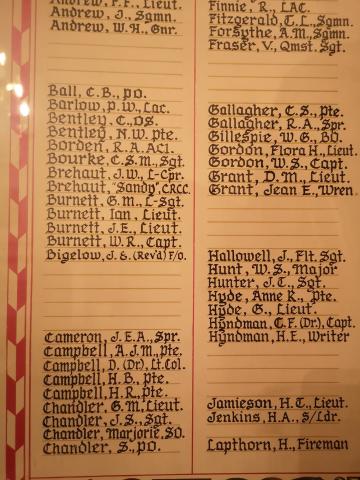 Andrew, F.F., Lieut.
Andrew, J., Sgmn.
Andrew, W.H., Gnr.
Ball, C.B., P.O.
Barlow, P.W., Lac.
Bentley, C., O/S.
Bentley, N.W. Pte.
Borden, R.A. AC1.
Bourke, C.S.M., Sgt.
Brehaut, J.W., L-Cpr.
Brehaut, "Sandy", C.R.C.C.
Burnett, G.M., L-Sgt.
Burnett, Ian, Lieut.
Burnett, J.E., Lieut.
Burnett, W.R., Capt.
Bigelow, J.&. (Rev'd) F/O.
Cameron, J.E.A., Spr.
Campbell, A.J.M., Pte.
Campbell, D. (Dr), Lt.Col.
Campbell, H.B., Pte.
Campbell, H.R., Pte.
Chandler, G.M., Lieut.
Chandler, J.S., Sgt.
Chandler, Marjorie, S.O.
Chandler, S., P.O.
Finnie, R., LAC.
Fitzgerald, T.L., Sgmn.
Forsythe, A.M., Sgmn.
Fraser, V., Qmst. Sgt.
Gallagher, C.S., Pte.
Gallagher, R.A., Spr.
Gillespie, W.G., B.O.
Gordon, Flora H., Lieut.
Gordon, W.S., Capt.
Grant, D.M., Lieut.
Grant, Jean E., Wren.
Hallowell, J., Flt. Sgt.
Hunt, W.S., Major
Hunter, J.T., Sgt.
Hyde, Anne R., Pte.
Hyde, G., Lieut.
Hyndman, C.F. (Dr), Capt.
Hyndman, H.E., Writer
Jamieson, H.T., Lieut.
Jenkins, H.A., S/Ldr.
Lapthorn, H., Fireman